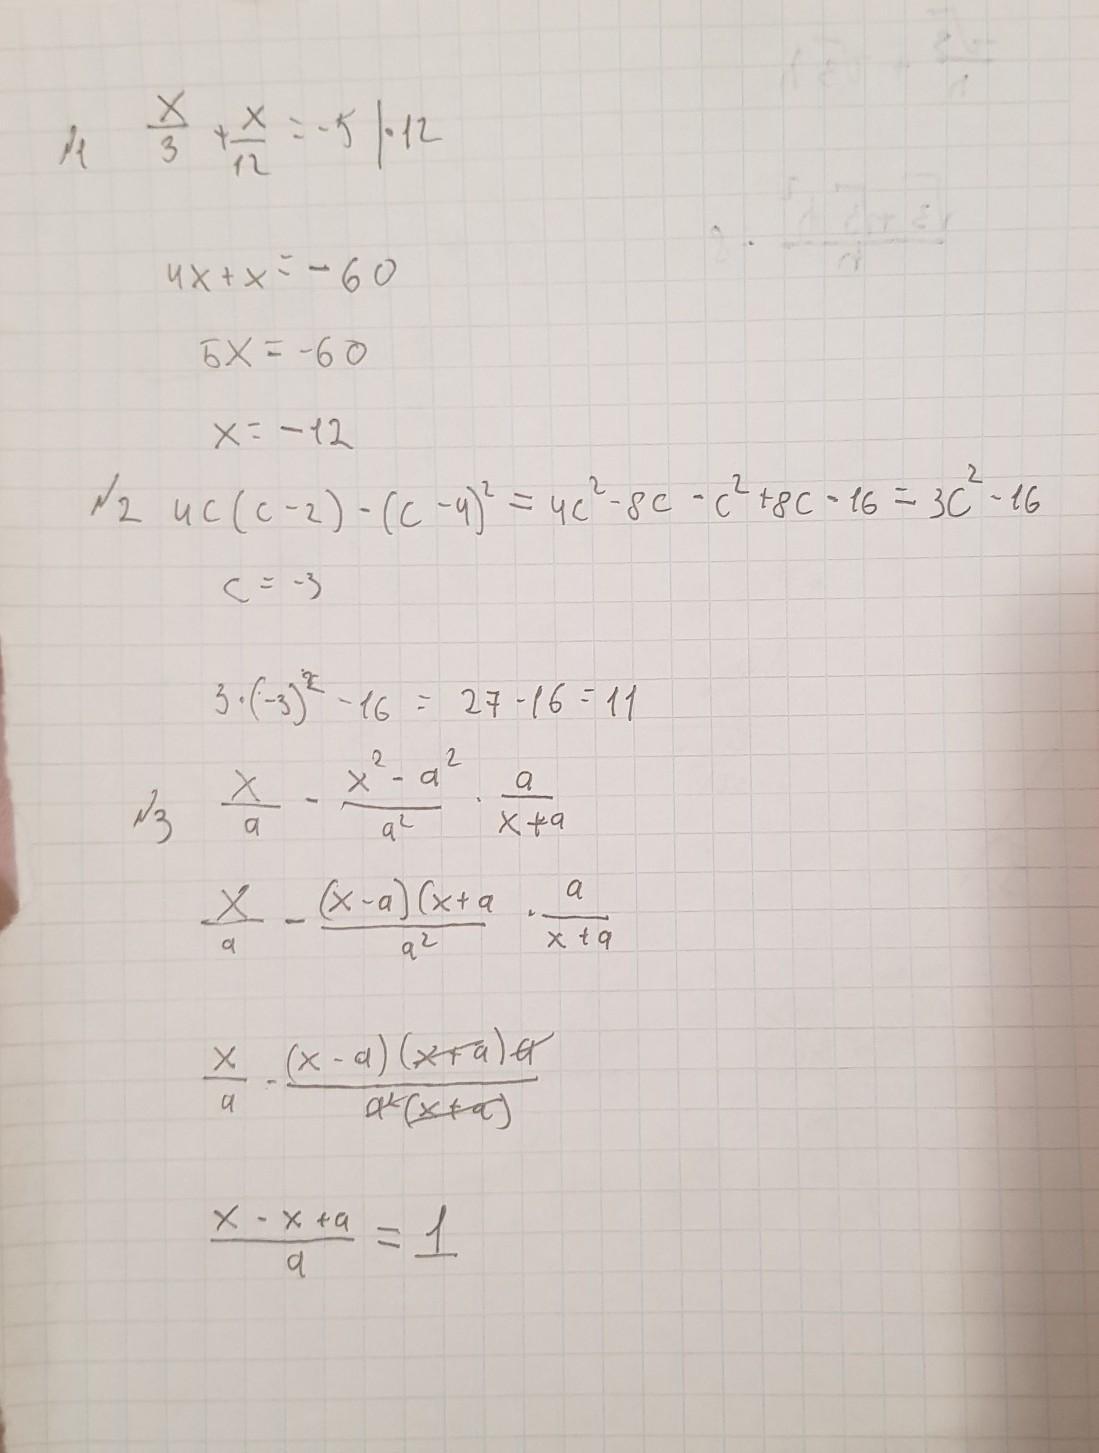 №1 x/3 + x/12 = -5 |·12
4x + x = -60
5x = -60
x = -12
№2 4c(c-2) - (c-4)² = 4c² - 8c - c² + 8c - 16 = 3c² - 16
c = -3
3·(-3)² - 16 = 27 - 16 = 11
№3 x/a - (x² - a²)/a² · a/(x+a)
x/a - (x-a)(x+a/a² · a/(x+a)
x/a - (x-a)(x+a)a/a²(x+a)
(x - x + a)/a = 1